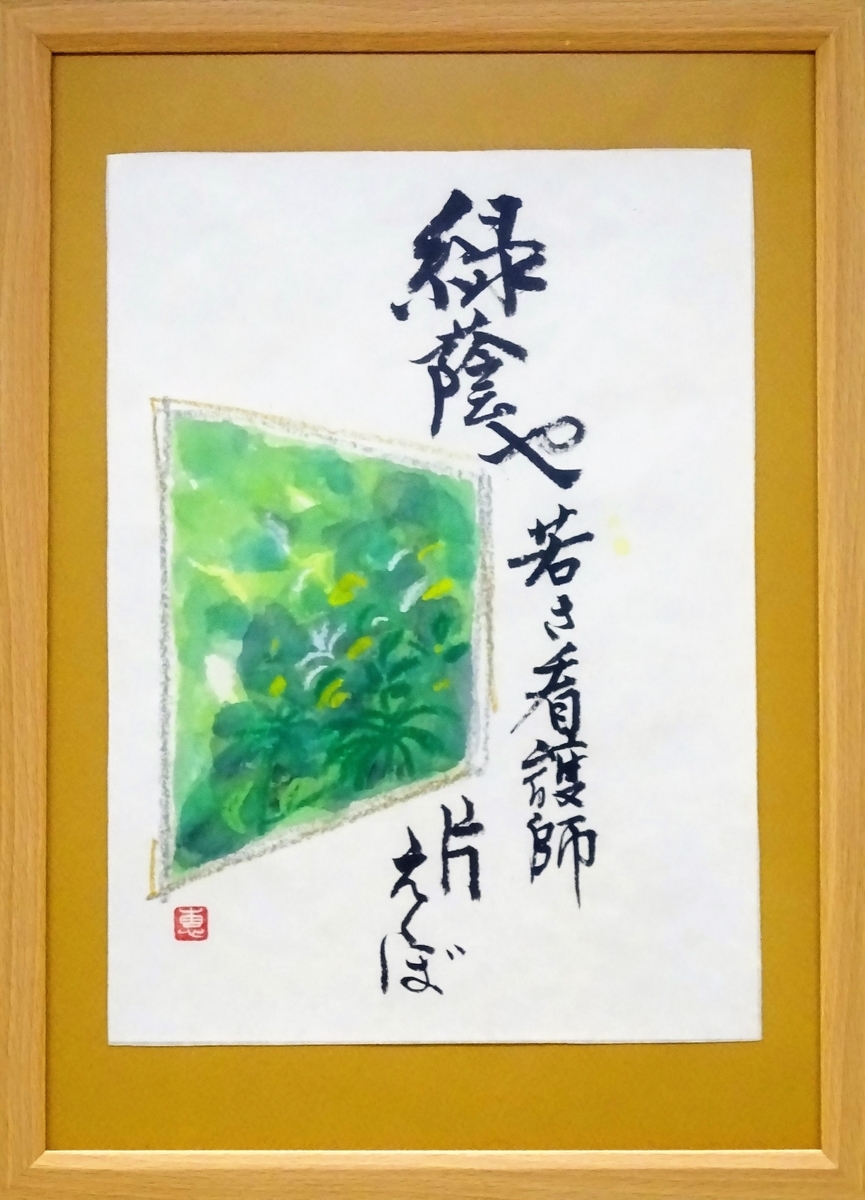 緑蔭や若き看護師
片えくぼ
恵